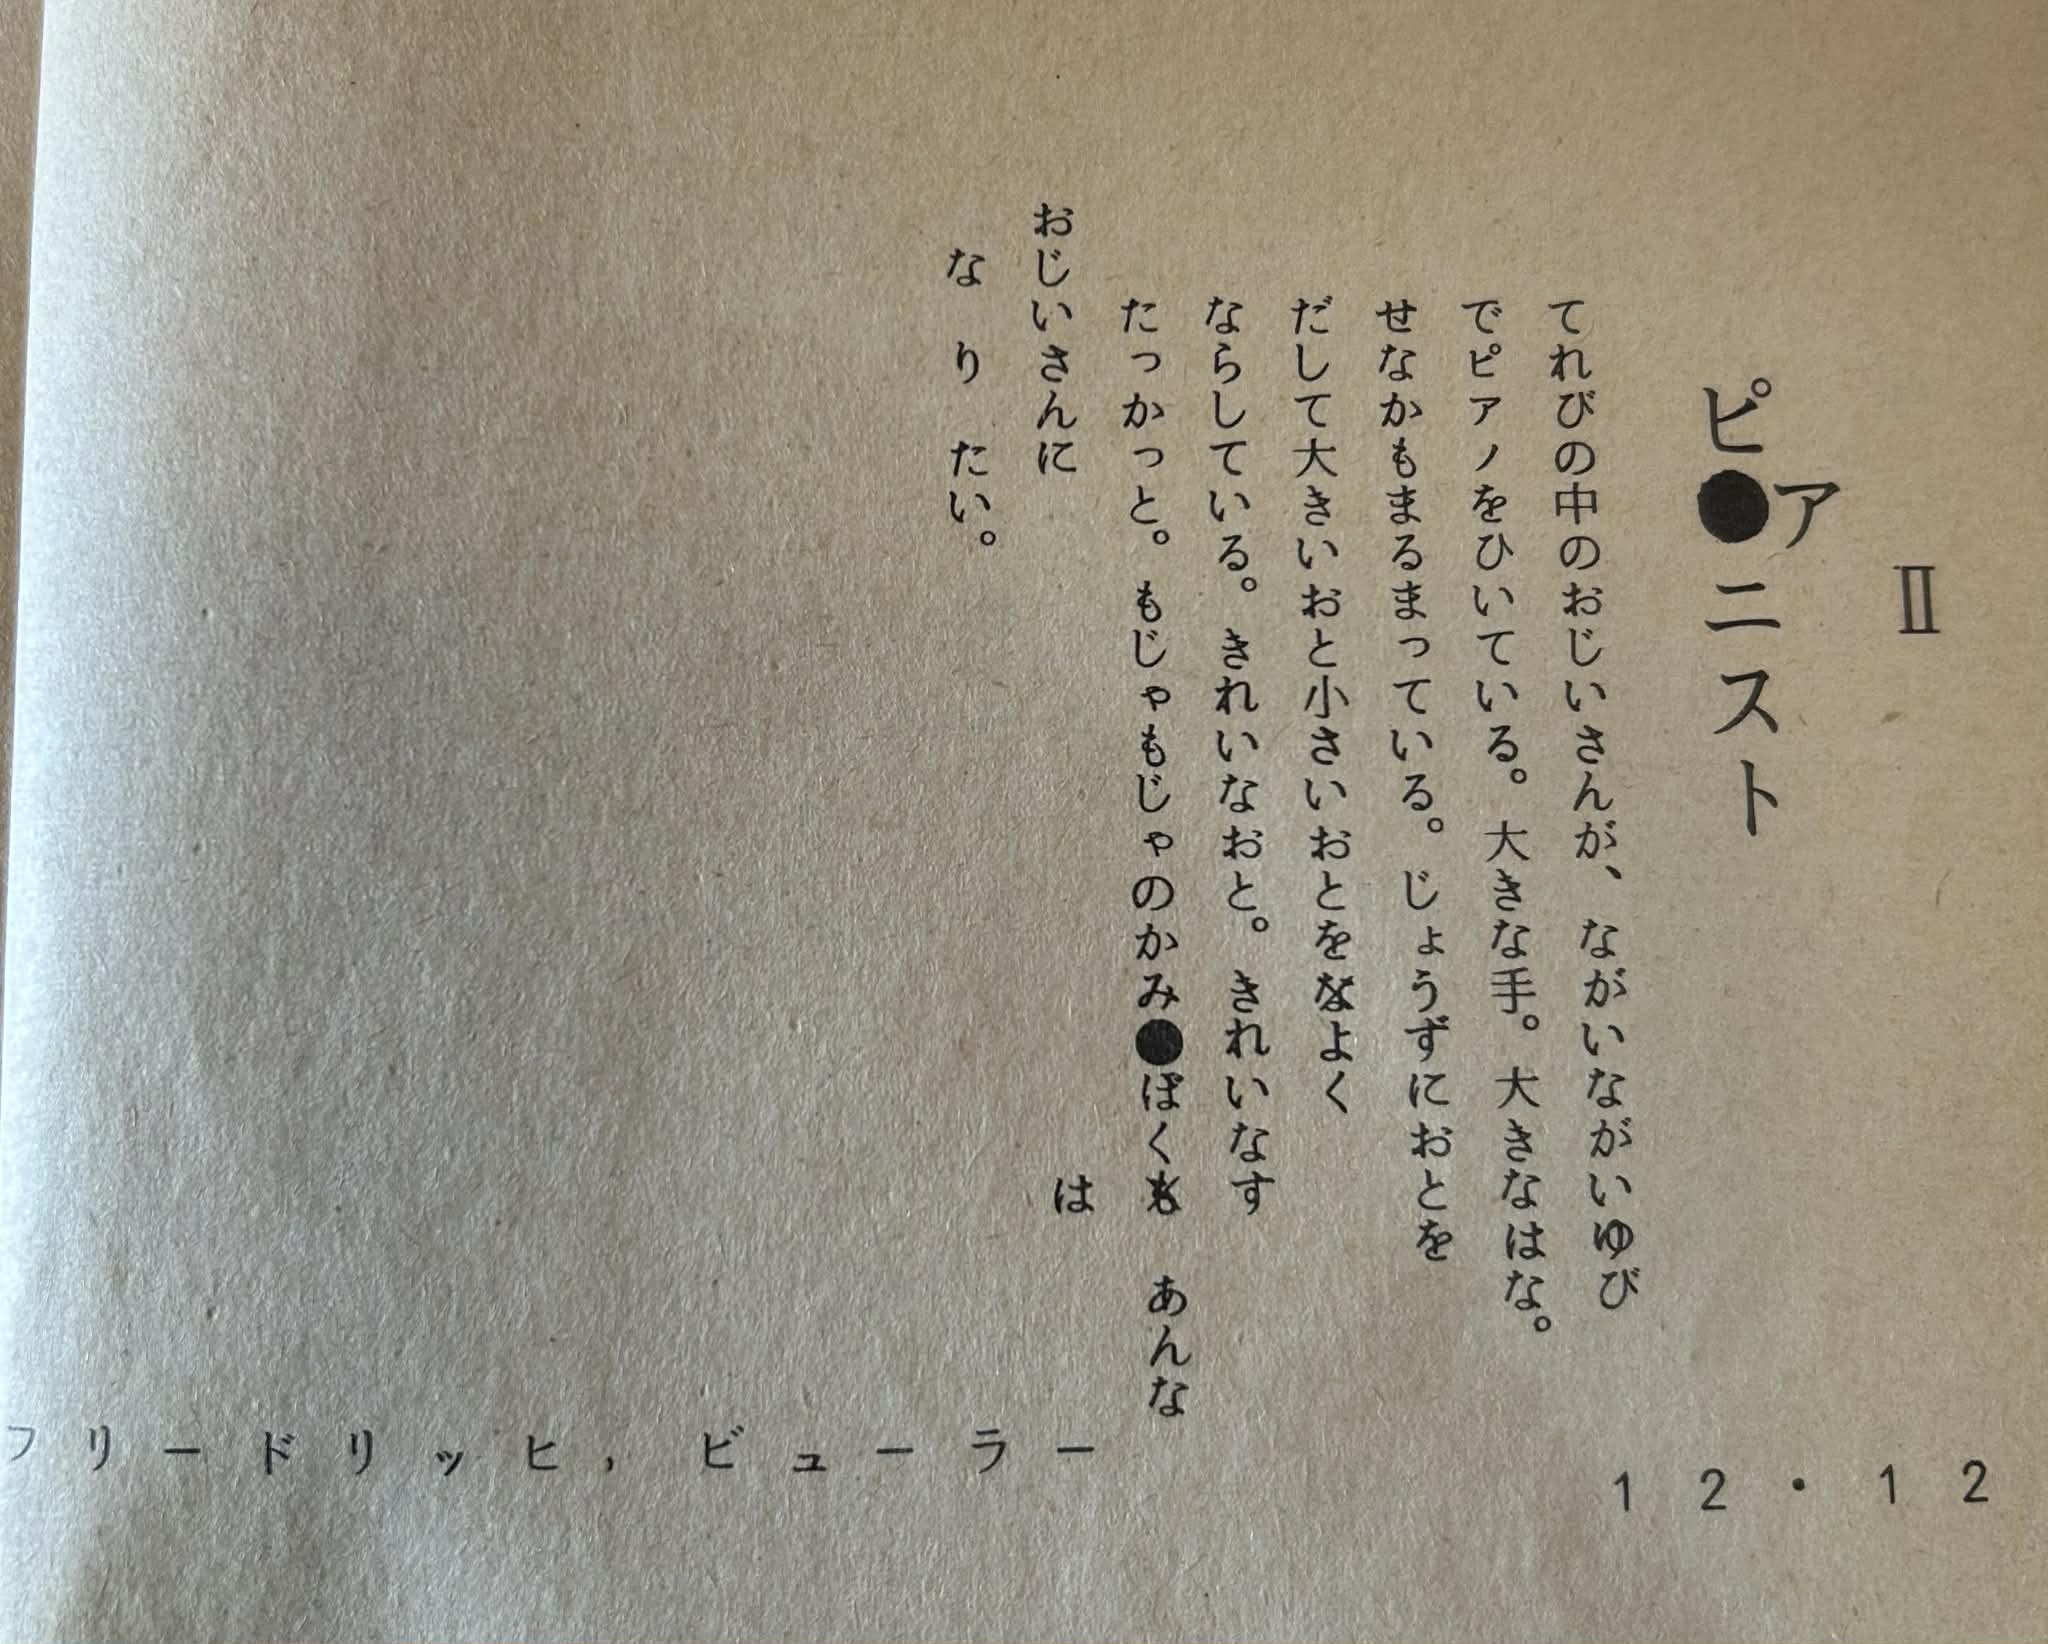 Ⅱ
ピ●アニスト
てれびの中のおじいさんが、ながいながいゆび
でピアノをひいている。大きな手。大きなはな。
せなかもまるまっている。じょうずにおとを
だして大きいおと小さいおとをなよく
ならしている。きれいなおと。きれいなす
たっかっと。もじゃもじゃのかみ●ぼくも あんな
は
おじいさんに
な り たい。
12・12
フリードリッヒ, ビューラー